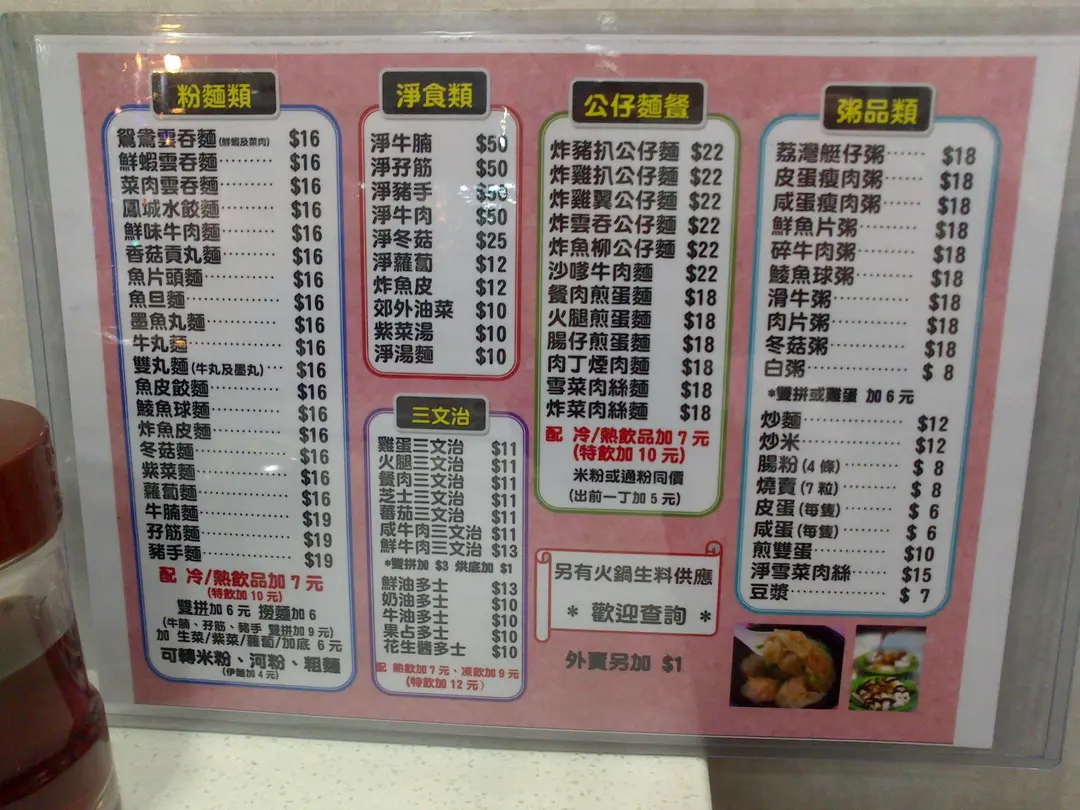 粉麵類
鴛鴦雲吞麵(鮮蝦及菜肉) $16
鮮蝦雲吞麵········· $16
菜肉雲吞麵········· $16
鳳城水餃麵········· $16
鮮味牛肉麵········· $16
香菇貢丸麵········· $16
魚片頭麵··········· $16
魚旦麵············· $16
墨魚丸麵··········· $16
牛丸麵············· $16
雙丸麵(牛丸及墨丸)··· $16
魚皮餃麵··········· $16
鯪魚球麵··········· $16
炸魚皮麵··········· $16
冬菇麵············· $16
紫菜麵············· $16
蘿蔔麵············· $16
牛腩麵············· $19
孖筋麵············· $19
豬手麵············· $19
配 冷/熱飲品加7元
(特飲加10元)
雙拼加6元 撈麵加6
(牛腩、孖筋、豬手 雙拼加9元)
加 生菜/紫菜/蘿蔔/加底 6元
可轉米粉、河粉、粗麵
(伊麵加4元)
淨食類
淨牛腩 $50
淨孖筋 $50
淨豬手 $50
淨牛肉 $50
淨冬菇 $25
淨蘿蔔 $12
炸魚皮 $12
郊外油菜 $10
紫菜湯 $10
淨湯麵 $10
三文治
雞蛋三文治 $11
火腿三文治 $11
餐肉三文治 $11
芝士三文治 $11
蕃茄三文治 $11
咸牛肉三文治 $11
鮮牛肉三文治 $13
*雙拼加 $3 烘底加 $1
鮮油多士 $13
奶油多士 $10
牛油多士 $10
果占多士 $10
花生醬多士 $10
配 熱飲加7元、凍飲加9元
(特飲加12元)
公仔麵餐
炸豬扒公仔麵 $22
炸雞扒公仔麵 $22
炸雞翼公仔麵 $22
炸雲吞公仔麵 $22
炸魚柳公仔麵 $22
沙嗲牛肉麵 $22
餐肉煎蛋麵 $18
火腿煎蛋麵 $18
腸仔煎蛋麵 $18
肉丁煙肉麵 $18
雪菜肉絲麵 $18
炸菜肉絲麵 $18
配 冷/熱飲品加7元
(特飲加10元)
米粉或通粉同價
(出前一丁加5元)
另有火鍋生料供應
* 歡迎查詢 *
外賣另加 $1
粥品類
荔灣艇仔粥······ $18
皮蛋瘦肉粥······ $18
咸蛋瘦肉粥······ $18
鮮魚片粥········ $18
碎牛肉粥········ $18
鯪魚球粥········ $18
滑牛粥·········· $18
肉片粥·········· $18
冬菇粥·········· $18
白粥············ $ 8
*雙拼或雞蛋 加6元
炒麵············ $12
炒米············ $12
腸粉(4條)······· $ 8
燒賣(7粒)······· $ 8
皮蛋(每隻)······ $ 6
咸蛋(每隻)······ $ 6
煎雙蛋·········· $10
淨雪菜肉絲······ $15
豆漿············ $ 7